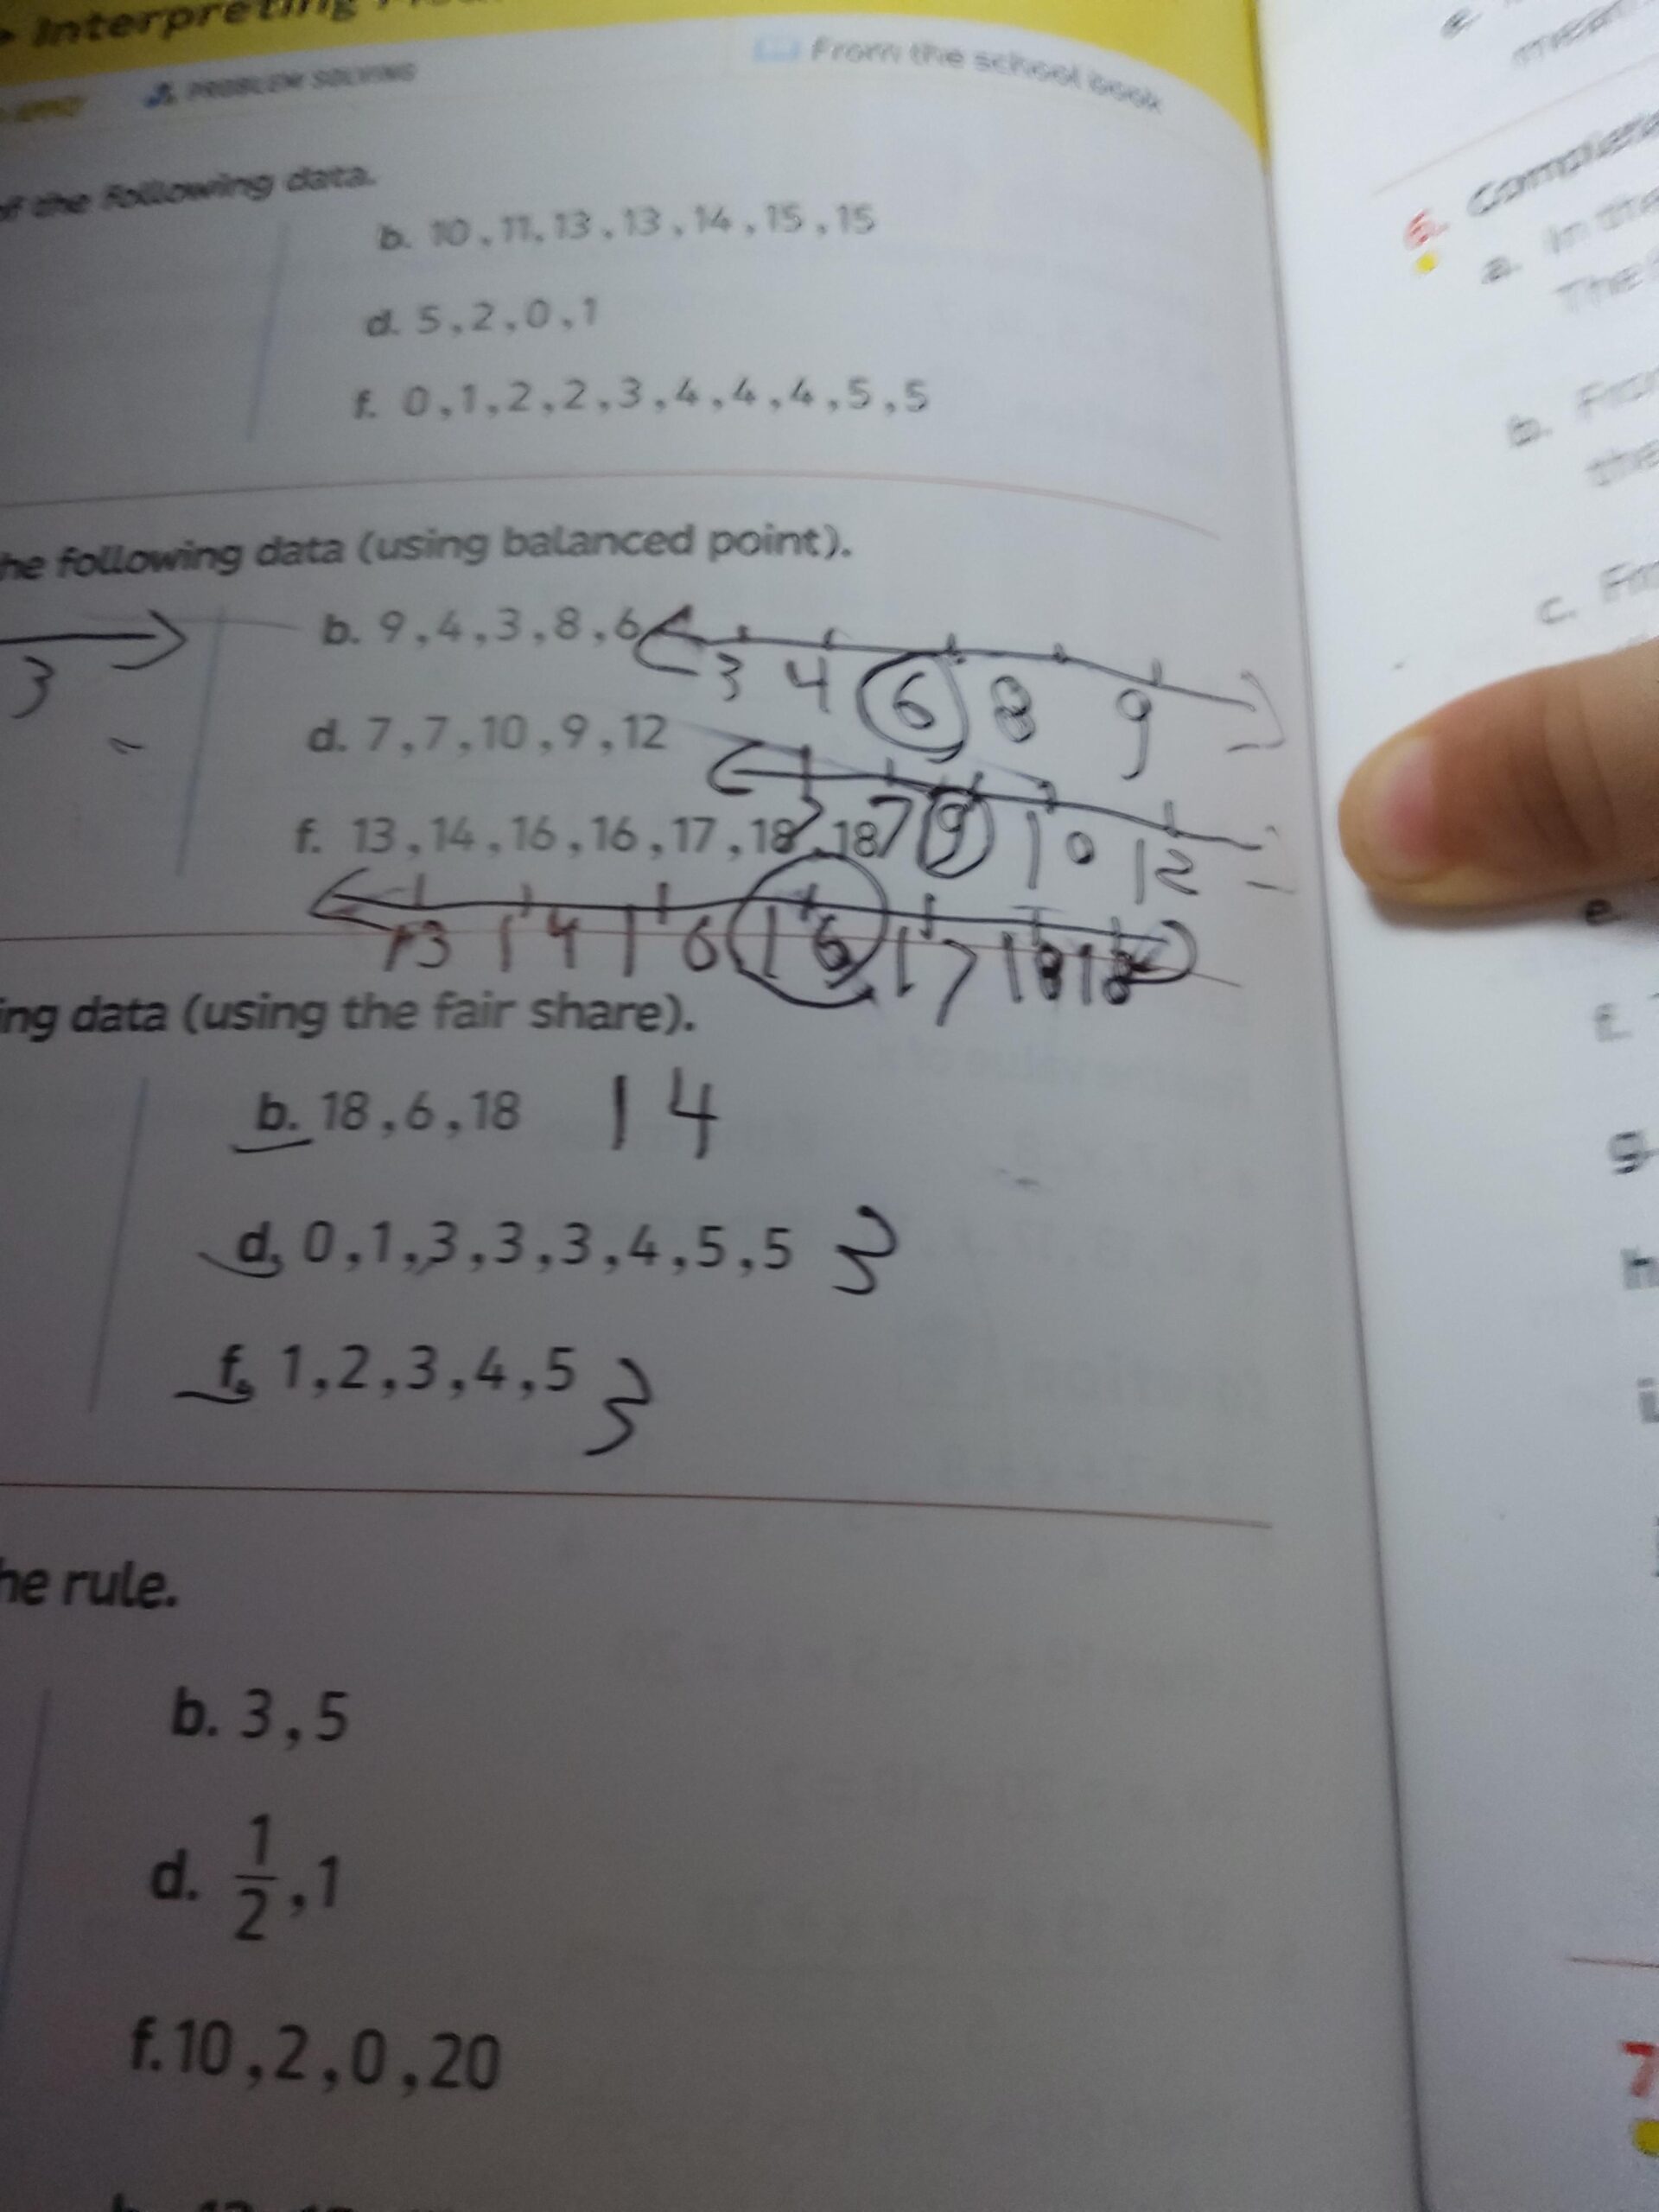 Interpreting
PROBLEM SOLVING
From the school book
of the following data.
b. 10, 11, 13, 13, 14, 15, 15
d. 5, 2, 0, 1
f. 0, 1, 2, 2, 3, 4, 4, 4, 5, 5
he following data (using balanced point).
3
b. 9, 4, 3, 8, 6
3 4 6 8 9
d. 7, 7, 10, 9, 12
7 7 9 10 12
f. 13, 14, 16, 16, 17, 18, 18
13 14 16 16 17 18 18
ing data (using the fair share).
b. 18, 6, 18 14
d. 0, 1, 3, 3, 3, 4, 5, 5 3
f. 1, 2, 3, 4, 5 3
he rule.
b. 3, 5
d. 1/2, 1
f. 10, 2, 0, 20
6. Complete
a. In the
The
b. From
the
c.
e.
f.
g.
h
i.
7